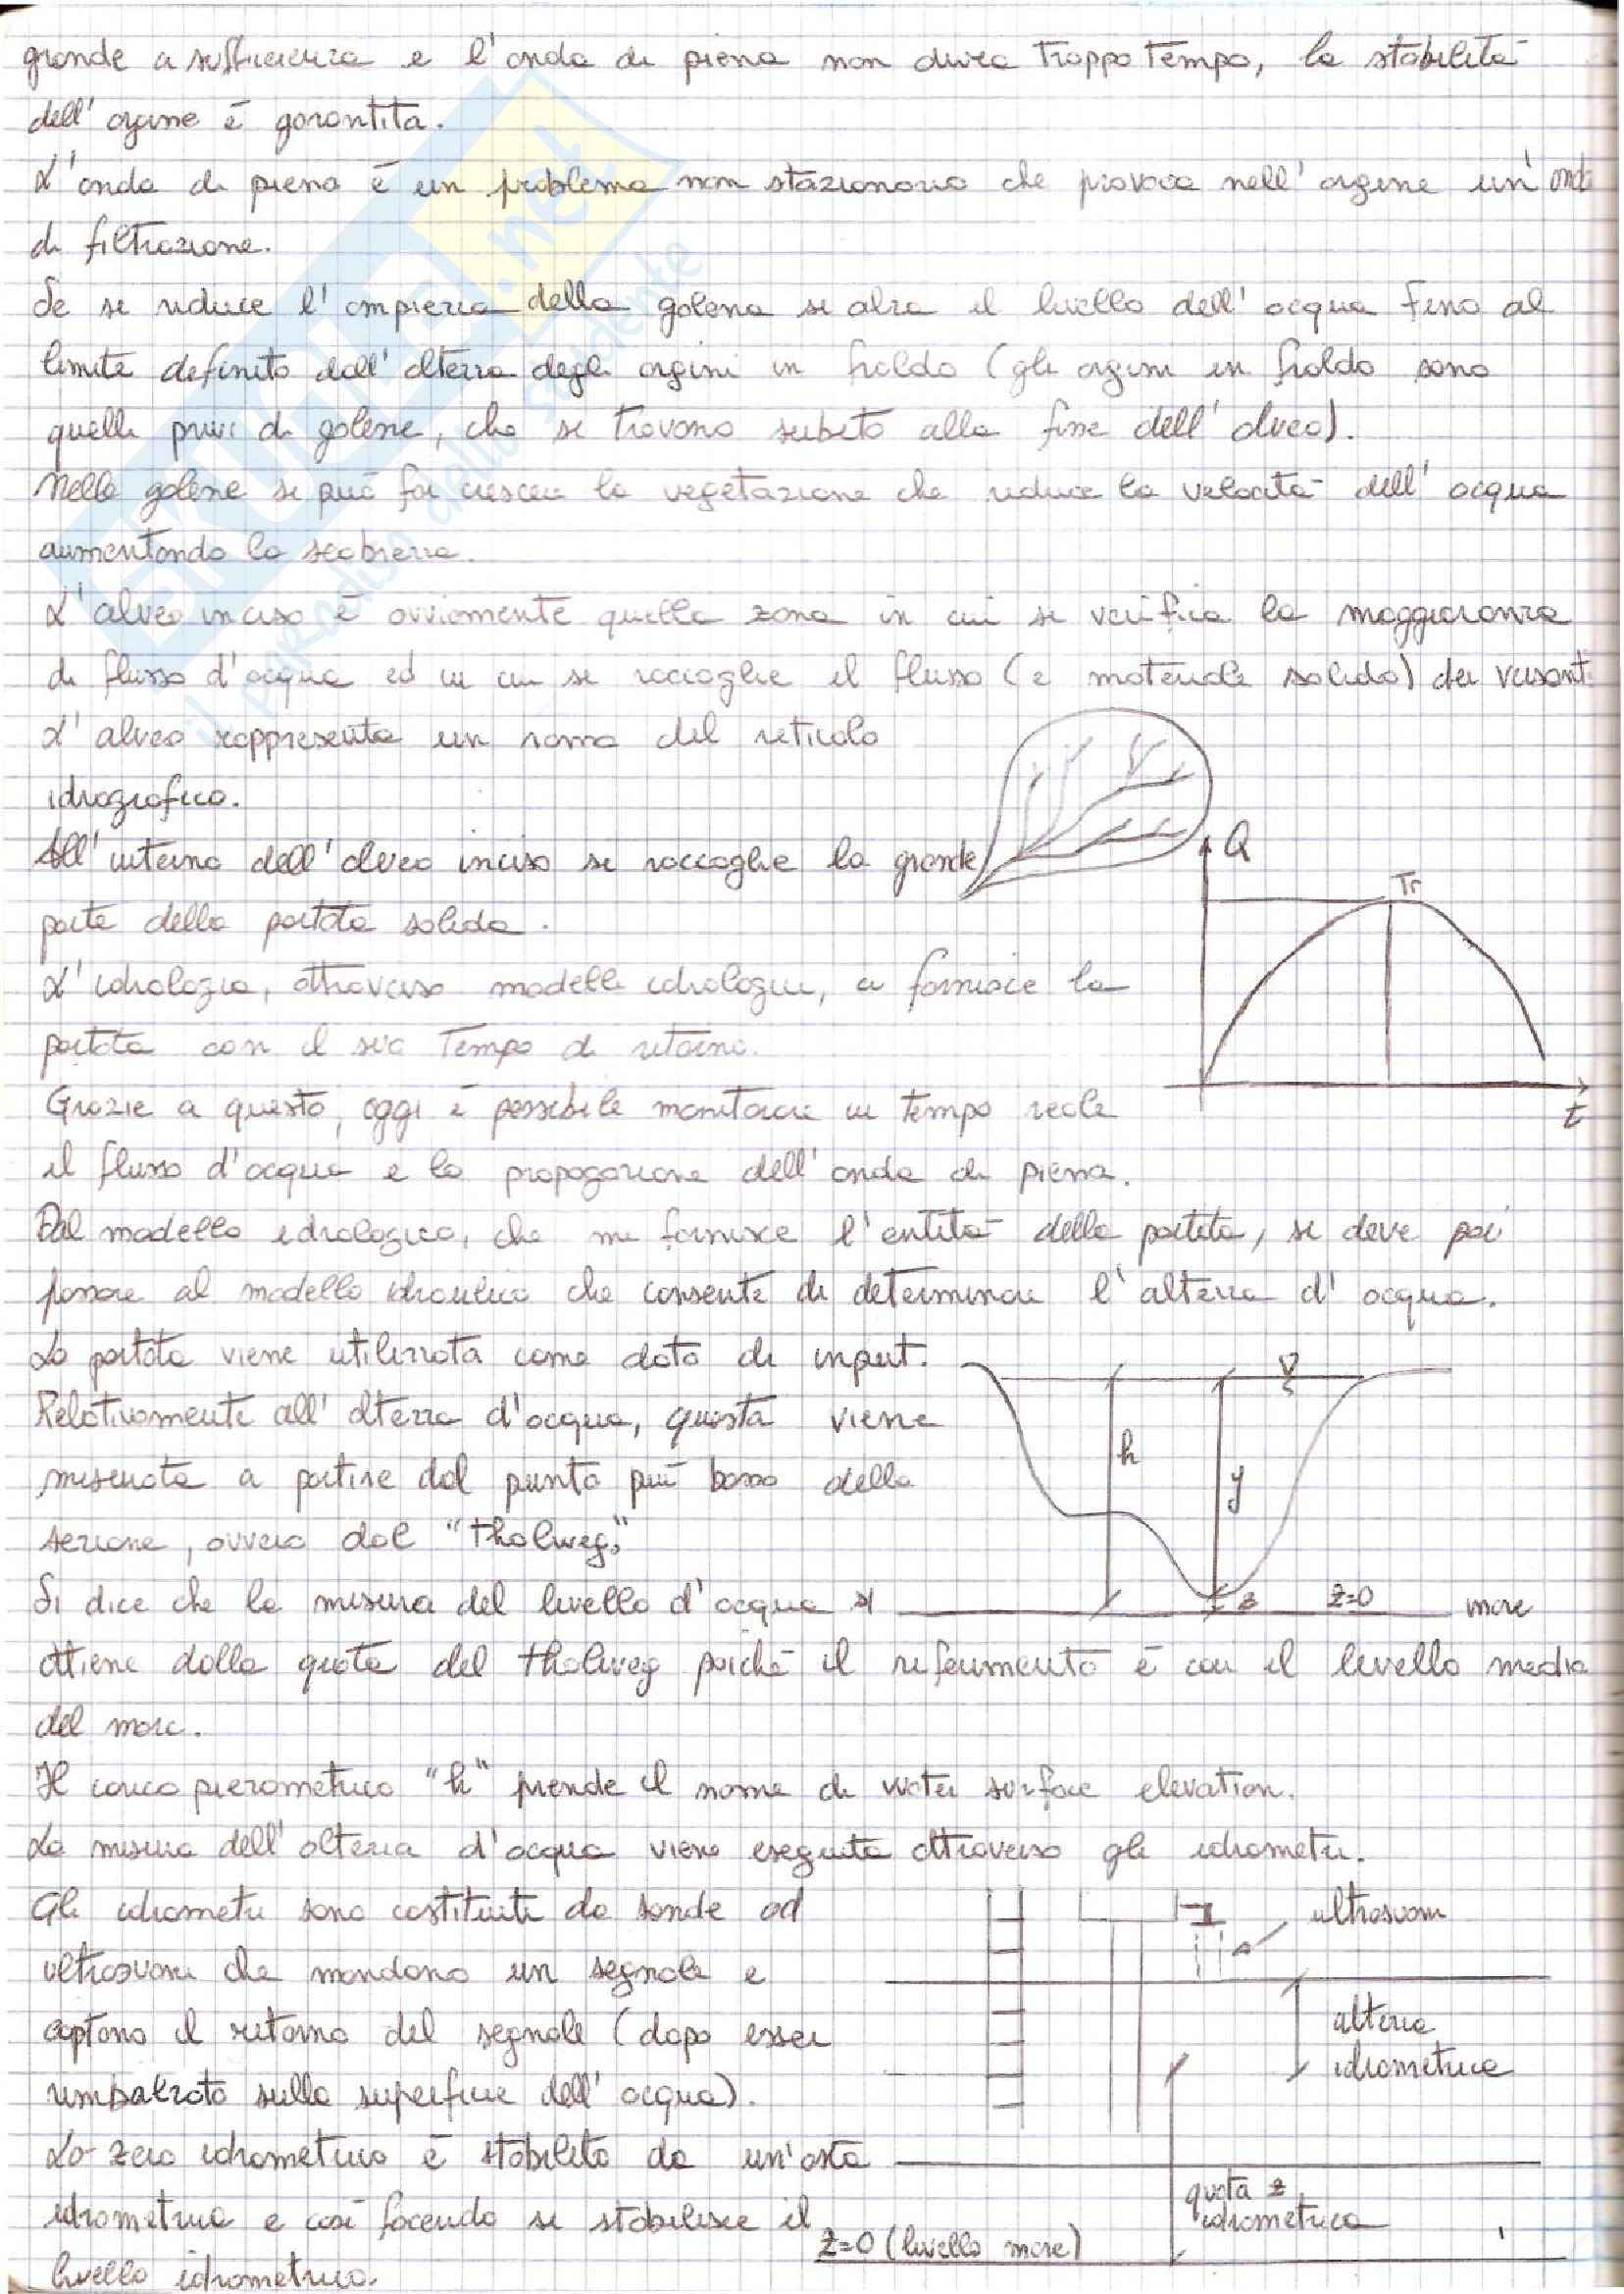 grande a sufficienza e l'onda di piena non dura troppo tempo, la stabilità
dell'argine è garantita.
L'onda di piena è un problema non stazionario che provoca nell'argine un'onda
di filtrazione.
Se si riduce l'ampiezza della golena si alza il livello dell'acqua fino al
limite definito dall'altezza degli argini in froldo (gli argini in froldo sono
quelli privi di golene, che si trovano subito alla fine dell'alveo).
Nelle golene si può far crescere la vegetazione che riduce la velocità dell'acqua
aumentando la scabrezza.
L'alveo inciso è ovviamente quella zona in cui si verifica la maggioranza
di flusso d'acqua ed in cui si raccoglie il flusso (e materiale solido) dei versanti.
L'alveo rappresenta un ramo del reticolo
idrografico.
All'interno dell'alveo inciso si raccoglie la grande
parte della portata solida.
Q
Tr
t
L'idrologia, attraverso modelli idrologici, ci fornisce la
portata con il suo tempo di ritorno.
Grazie a questo, oggi è possibile monitorare in tempo reale
il flusso d'acqua e la propagazione dell'onda di piena.
Dal modello idrologico, che mi fornisce l'entità della portata, si deve poi
passare al modello idraulico che consente di determinare l'altezza d'acqua.
La portata viene utilizzata come dato di input.
Relativamente all'altezza d'acqua, questa viene
misurata a partire dal punto più basso della
sezione, ovvero dal "tholweg".
h
y
z
z=0
mare
Si dice che la misura del livello d'acqua si
ottiene dalla quota del tholweg poiché il riferimento è con il livello medio
del mare.
Il carico piezometrico "h" prende il nome di water surface elevation.
La misura dell'altezza d'acqua viene eseguita attraverso gli idrometri.
Gli idrometri sono costituiti da sonde ad
ultrasuoni che mandano un segnale e
captano il ritorno del segnale (dopo esser
rimbalzato sulla superficie dell'acqua).
Lo zero idrometrico è stabilito da un'asta
idrometrica e così facendo si stabilisce il
livello idrometrico.
ultrasuoni
altezza
idrometrica
quota z
idrometrica
z=0 (livello mare)
SKUOLA.net
il paradiso dello studente